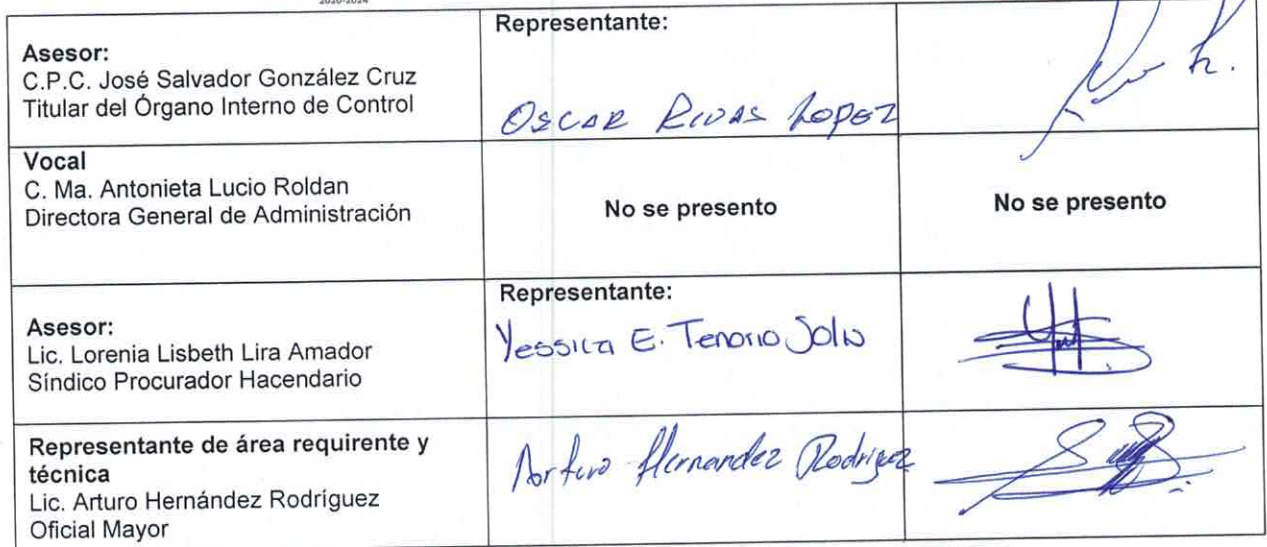 2020-2024
Asesor:
C.P.C. José Salvador González Cruz
Titular del Órgano Interno de Control
Representante:
OSCAR RIVAS LOPEZ
Vocal
C. Ma. Antonieta Lucio Roldan
Directora General de Administración
No se presento
No se presento
Asesor:
Lic. Lorenia Lisbeth Lira Amador
Síndico Procurador Hacendario
Representante:
Yessica E. Tenorio
Representante de área requirente y
técnica
Lic. Arturo Hernández Rodríguez
Oficial Mayor
Arturo Hernandez Rodriguez